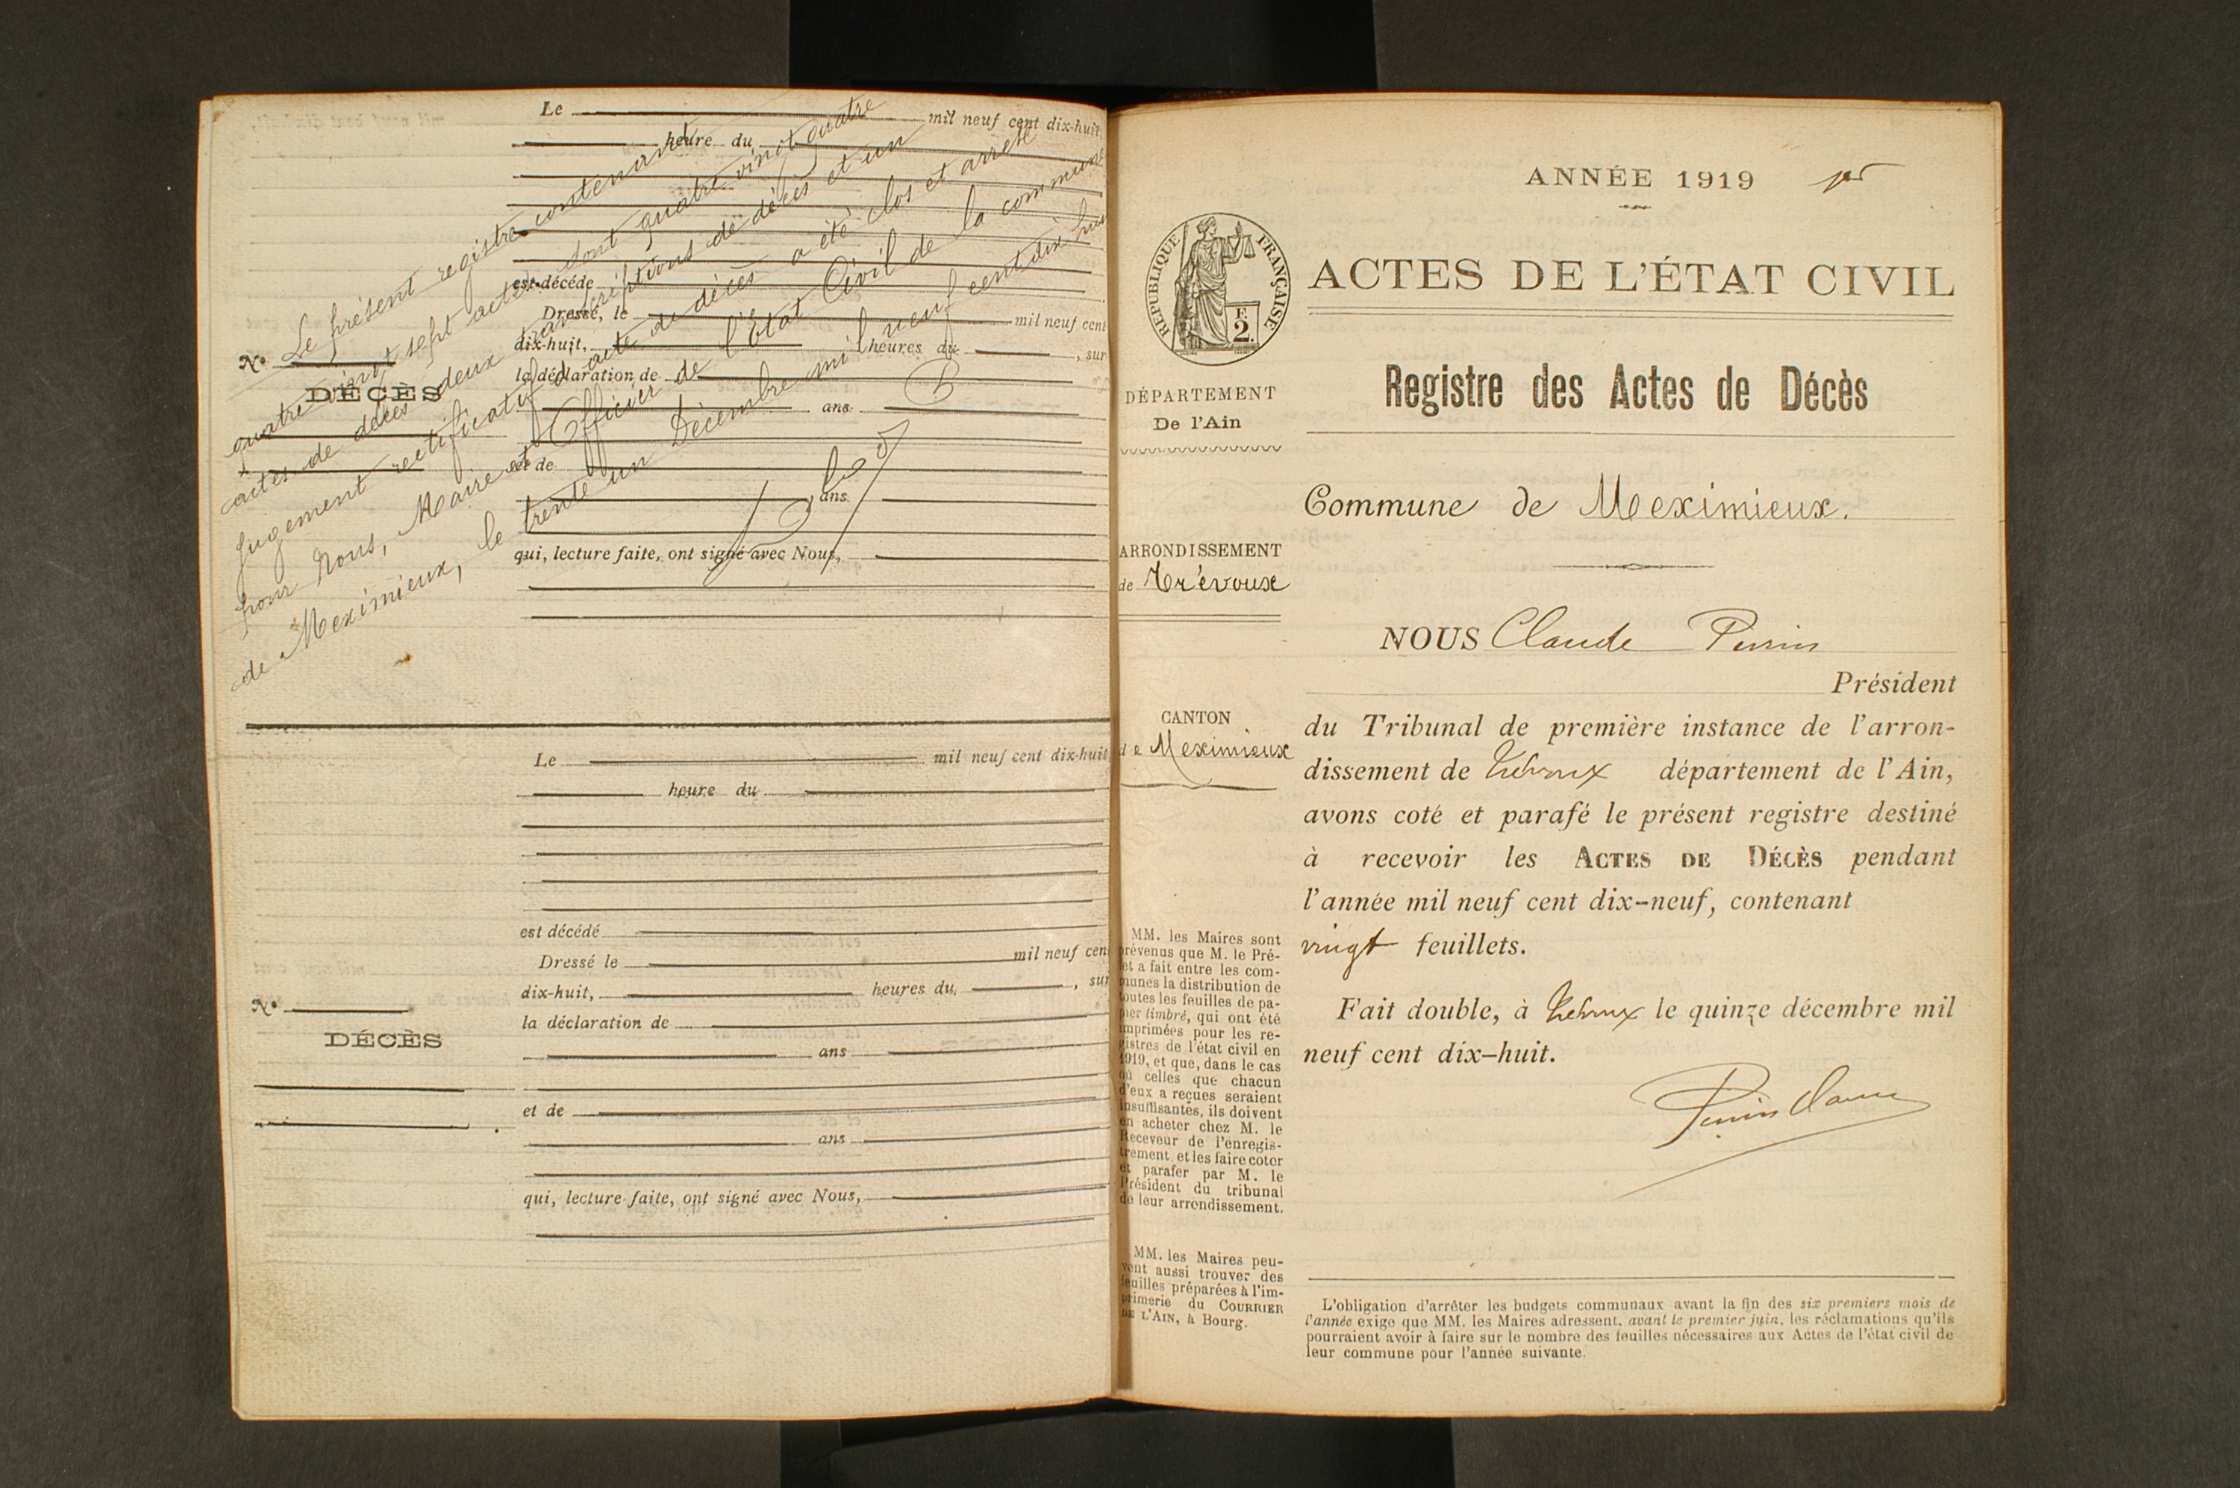 Le mil neuf cent dix-huit,
heure du
est décédé
Dressé, le mil neuf cent
dix-huit, heures du , sur
la déclaration de
ans
et de
ans
qui, lecture faite, ont signé avec Nous,
N°
DÉCÈS
Le présent registre contenant
quatre vingt sept actes dont quatre vingt quatre
actes de décès deux transcriptions de décès et un
jugement rectificatif d'acte de décès a été clos et arrêté
par Nous, Maire et Officier de l'Etat Civil de la commune
de Meximieux, le trente un Décembre mil neuf cent dix huit
Le mil neuf cent dix-huit
heure du
est décédé
Dressé le mil neuf cent
dix-huit, heures du , sur
la déclaration de
ans
et de
ans
qui, lecture faite, ont signé avec Nous,
N°
DÉCÈS
RÉPUBLIQUE FRANÇAISE
F.
2.
DÉPARTEMENT
De l'Ain
ARRONDISSEMENT
de Trévoux
CANTON
de Meximieux
MM. les Maires sont
prévenus que M. le Pré-
fet a fait entre les com-
munes la distribution de
toutes les feuilles de pa-
pier timbré, qui ont été
imprimées pour les re-
gistres de l'état civil en
1919, et que, dans le cas
où celles que chacun
d'eux a reçues seraient
insuffisantes, ils doivent
en acheter chez M. le
Receveur de l'enregis-
trement et les faire coter
et parafer par M. le
Président du tribunal
de leur arrondissement.
MM. les Maires peu-
vent aussi trouver des
feuilles préparées à l'im-
primerie du COURRIER
DE L'AIN, à Bourg.
ANNÉE 1919
ACTES DE L'ÉTAT CIVIL
Registre des Actes de Décès
Commune de Meximieux.
NOUS Claude Perrin
Président
du Tribunal de première instance de l'arron-
dissement de Trévoux département de l'Ain,
avons coté et parafé le présent registre destiné
à recevoir les ACTES DE DÉCÈS pendant
l'année mil neuf cent dix-neuf, contenant
vingt feuillets.
Fait double, à Trévoux le quinze décembre mil
neuf cent dix-huit.
Perrin Claude
L'obligation d'arrêter les budgets communaux avant la fin des six premiers mois de
l'année exige que MM. les Maires adressent, avant le premier juin, les réclamations qu'ils
pourraient avoir à faire sur le nombre des feuilles nécessaires aux Actes de l'état civil de
leur commune pour l'année suivante.